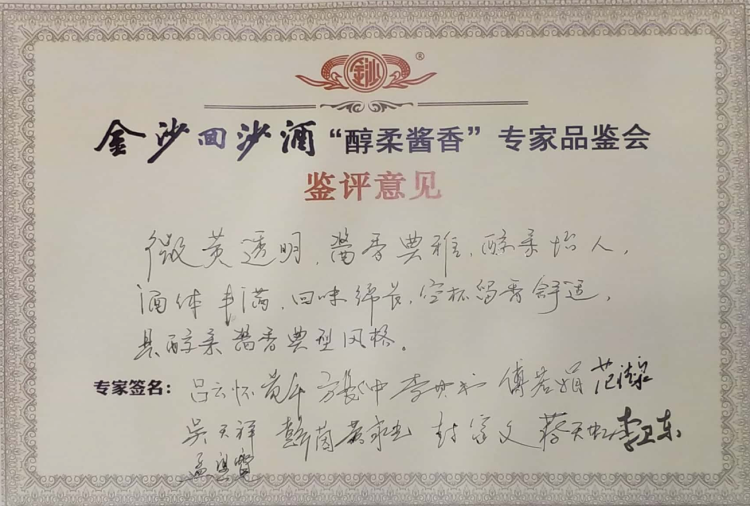 金沙
®
金沙回沙酒“醇柔酱香”专家品鉴会
鉴评意见
微黄透明，酱香典雅，醇柔怡人，
酒体丰满，回味绵长，空杯留香舒适，
具醇柔酱香典型风格。
专家签名：吕云怀 傅若娟
吴天祥 彭茵 封家文 蔡天虹 李卫东